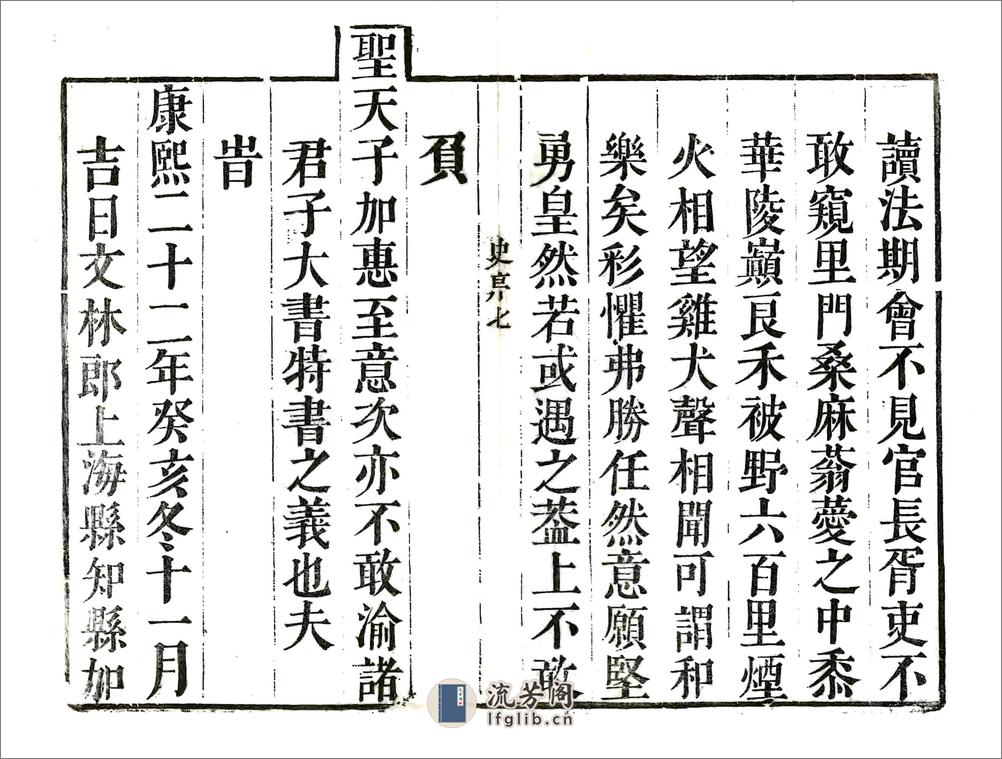 讀法期會不見官長胥吏不
敢窺里門桑麻蓊薆之中黍
華陵巔艮禾被野六百里煙
火相望雞犬聲相聞可謂和
樂矣彩懼弗勝任然意願堅
勇皇然若或遇之葢上不敢
史序七
負
聖天子加惠至意次亦不敢渝諸
君子大書特書之義也夫
旹
康熙二十二年癸亥冬十一月
吉日文林郎上海縣知縣加
流芳阁
lfglib.cn